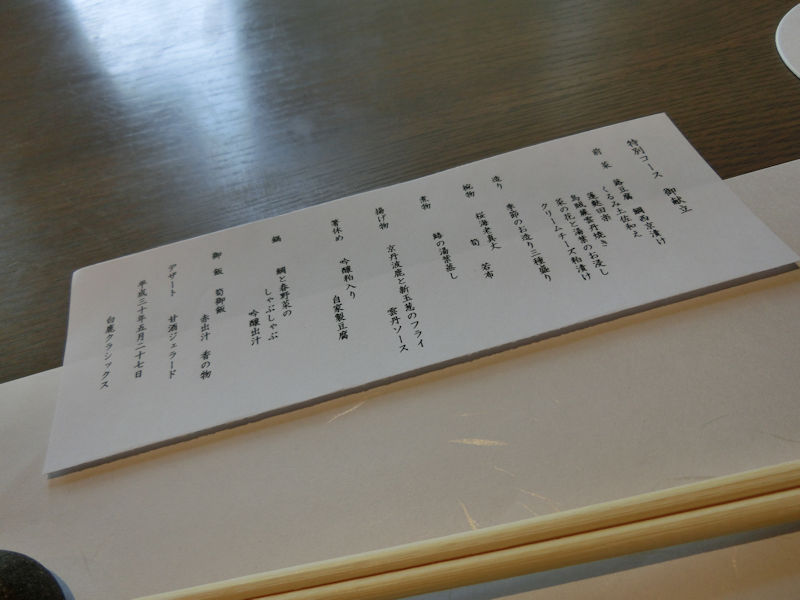 特別コース 御献立
前菜 藤豆腐 鯛西京漬け
くるみ土佐和え
蓬麩田楽
烏賊蘆雲丹焼き
菜の花と湯葉のお浸し
クリームチーズ粕漬け
造り 季節のお造り三種盛り
椀物 桜海老真丈
筍 若布
煮物 鰆の湯葉蒸し
揚げ物 京丹波鹿と新玉葱のフライ
雲丹ソース
箸休め 吟醸粕入り 自家製豆腐
鍋 鯛と春野菜の
しゃぶしゃぶ
吟醸出汁
御飯 筍御飯
赤出汁 香の物
デザート 甘酒ジェラード
平成三十年五月二十七日
白鹿クラシックス